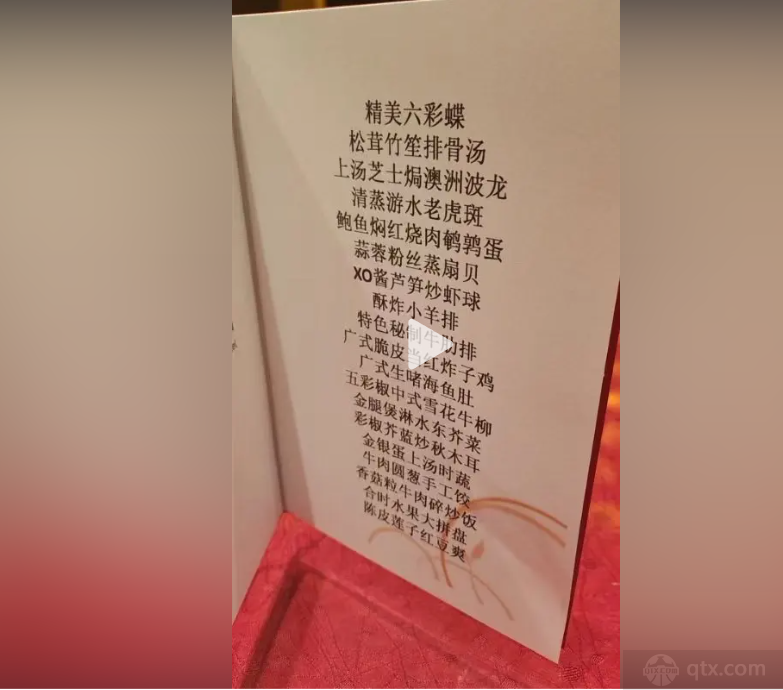 精美六彩蝶
松茸竹笙排骨汤
上汤芝士焗澳洲波龙
清蒸游水老虎斑
鲍鱼焖红烧肉鹌鹑蛋
蒜蓉粉丝蒸扇贝
XO酱芦笋炒虾球
酥炸小羊排
特色秘制牛肋排
广式脆皮当红炸子鸡
广式生啫海鱼肚
五彩椒中式雪花牛柳
金腿煲淋水东芥菜
彩椒芥蓝炒秋木耳
金银蛋上汤时蔬
牛肉圆葱手工饺
香菇粒牛肉碎炒饭
合时水果大拼盘
陈皮莲子红豆爽
qtx.com